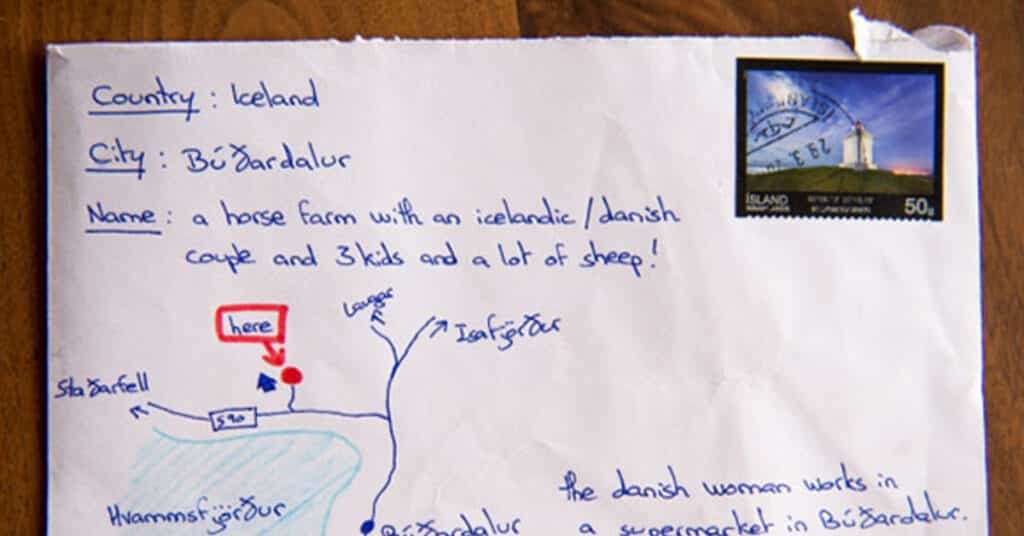 Country : Iceland
City : Búðardalur
Name : a horse farm with an icelandic/danish
couple and 3 kids and a lot of sheep!
ÍSLAND
50g
here
Laugar
Isafjörður
Staðarfell
590
Hvammsfjörður
Búðardalur
the danish woman works in
a supermarket in Búðardalur.